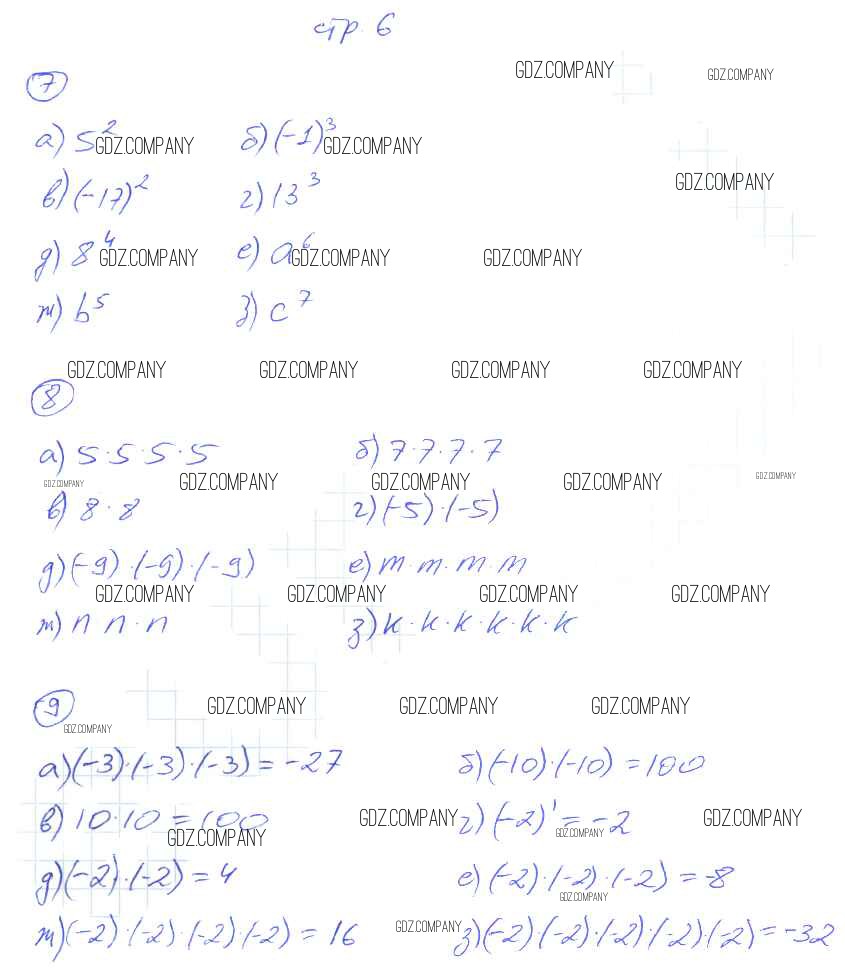 стр 6
GDZ.COMPANY GDZ.COMPANY
7
а) 5² GDZ.COMPANY б) (-1)³ GDZ.COMPANY
в) (-17)² г) 13³ GDZ.COMPANY
д) 8⁴ GDZ.COMPANY е) a⁶ GDZ.COMPANY GDZ.COMPANY
ж) b⁵ з) c⁷
GDZ.COMPANY GDZ.COMPANY GDZ.COMPANY GDZ.COMPANY
8
а) 5·5·5·5 б) 7·7·7·7
GDZ.COMPANY GDZ.COMPANY GDZ.COMPANY GDZ.COMPANY GDZ.COMPANY
в) 8·8 г) (-5)·(-5)
д) (-9)·(-9)·(-9) е) m·m·m·m
GDZ.COMPANY GDZ.COMPANY GDZ.COMPANY GDZ.COMPANY
ж) n n·n з) k·k·k·k·k·k
9
GDZ.COMPANY GDZ.COMPANY GDZ.COMPANY
GDZ.COMPANY
а) (-3)·(-3)·(-3) = -27 б) (-10)·(-10) = 100
в) 10·10 = 100 GDZ.COMPANY г) (-2)¹ = -2 GDZ.COMPANY
GDZ.COMPANY GDZ.COMPANY
д) (-2)·(-2) = 4 е) (-2)·(-2)·(-2) = -8
GDZ.COMPANY
ж) (-2)·(-2)·(-2)·(-2) = 16 GDZ.COMPANY з) (-2)·(-2)·(-2)·(-2)·(-2) = -32